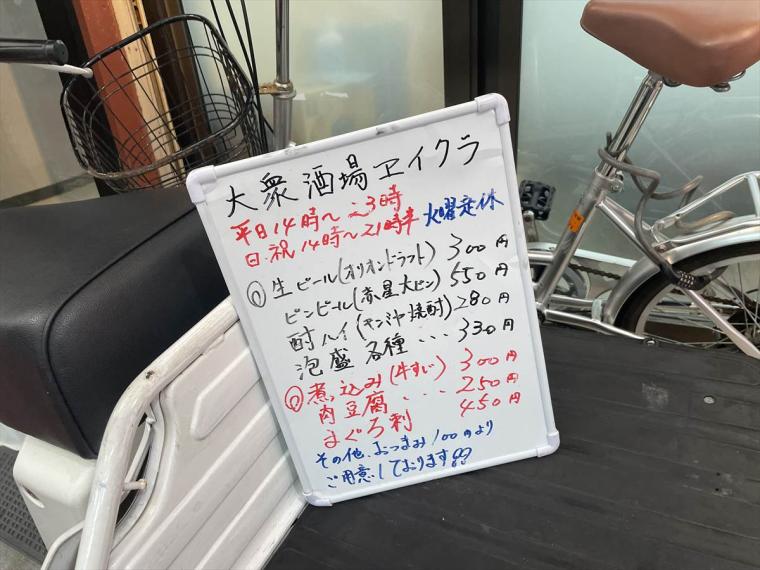 大衆酒場ヱイクラ
平日14時〜23時
日・祝14時〜21時半 火曜定休
生ビール(オリオンドラフト) 300円
ビンビール(赤星大ビン) 550円
酎ハイ(キンミヤ焼酎) 280円
泡盛 各種・・・ 330円
煮込み(牛すじ) 300円
肉豆腐・・・ 250円
まぐろ刺 450円
その他、おつまみ100円より
ご用意しております!!